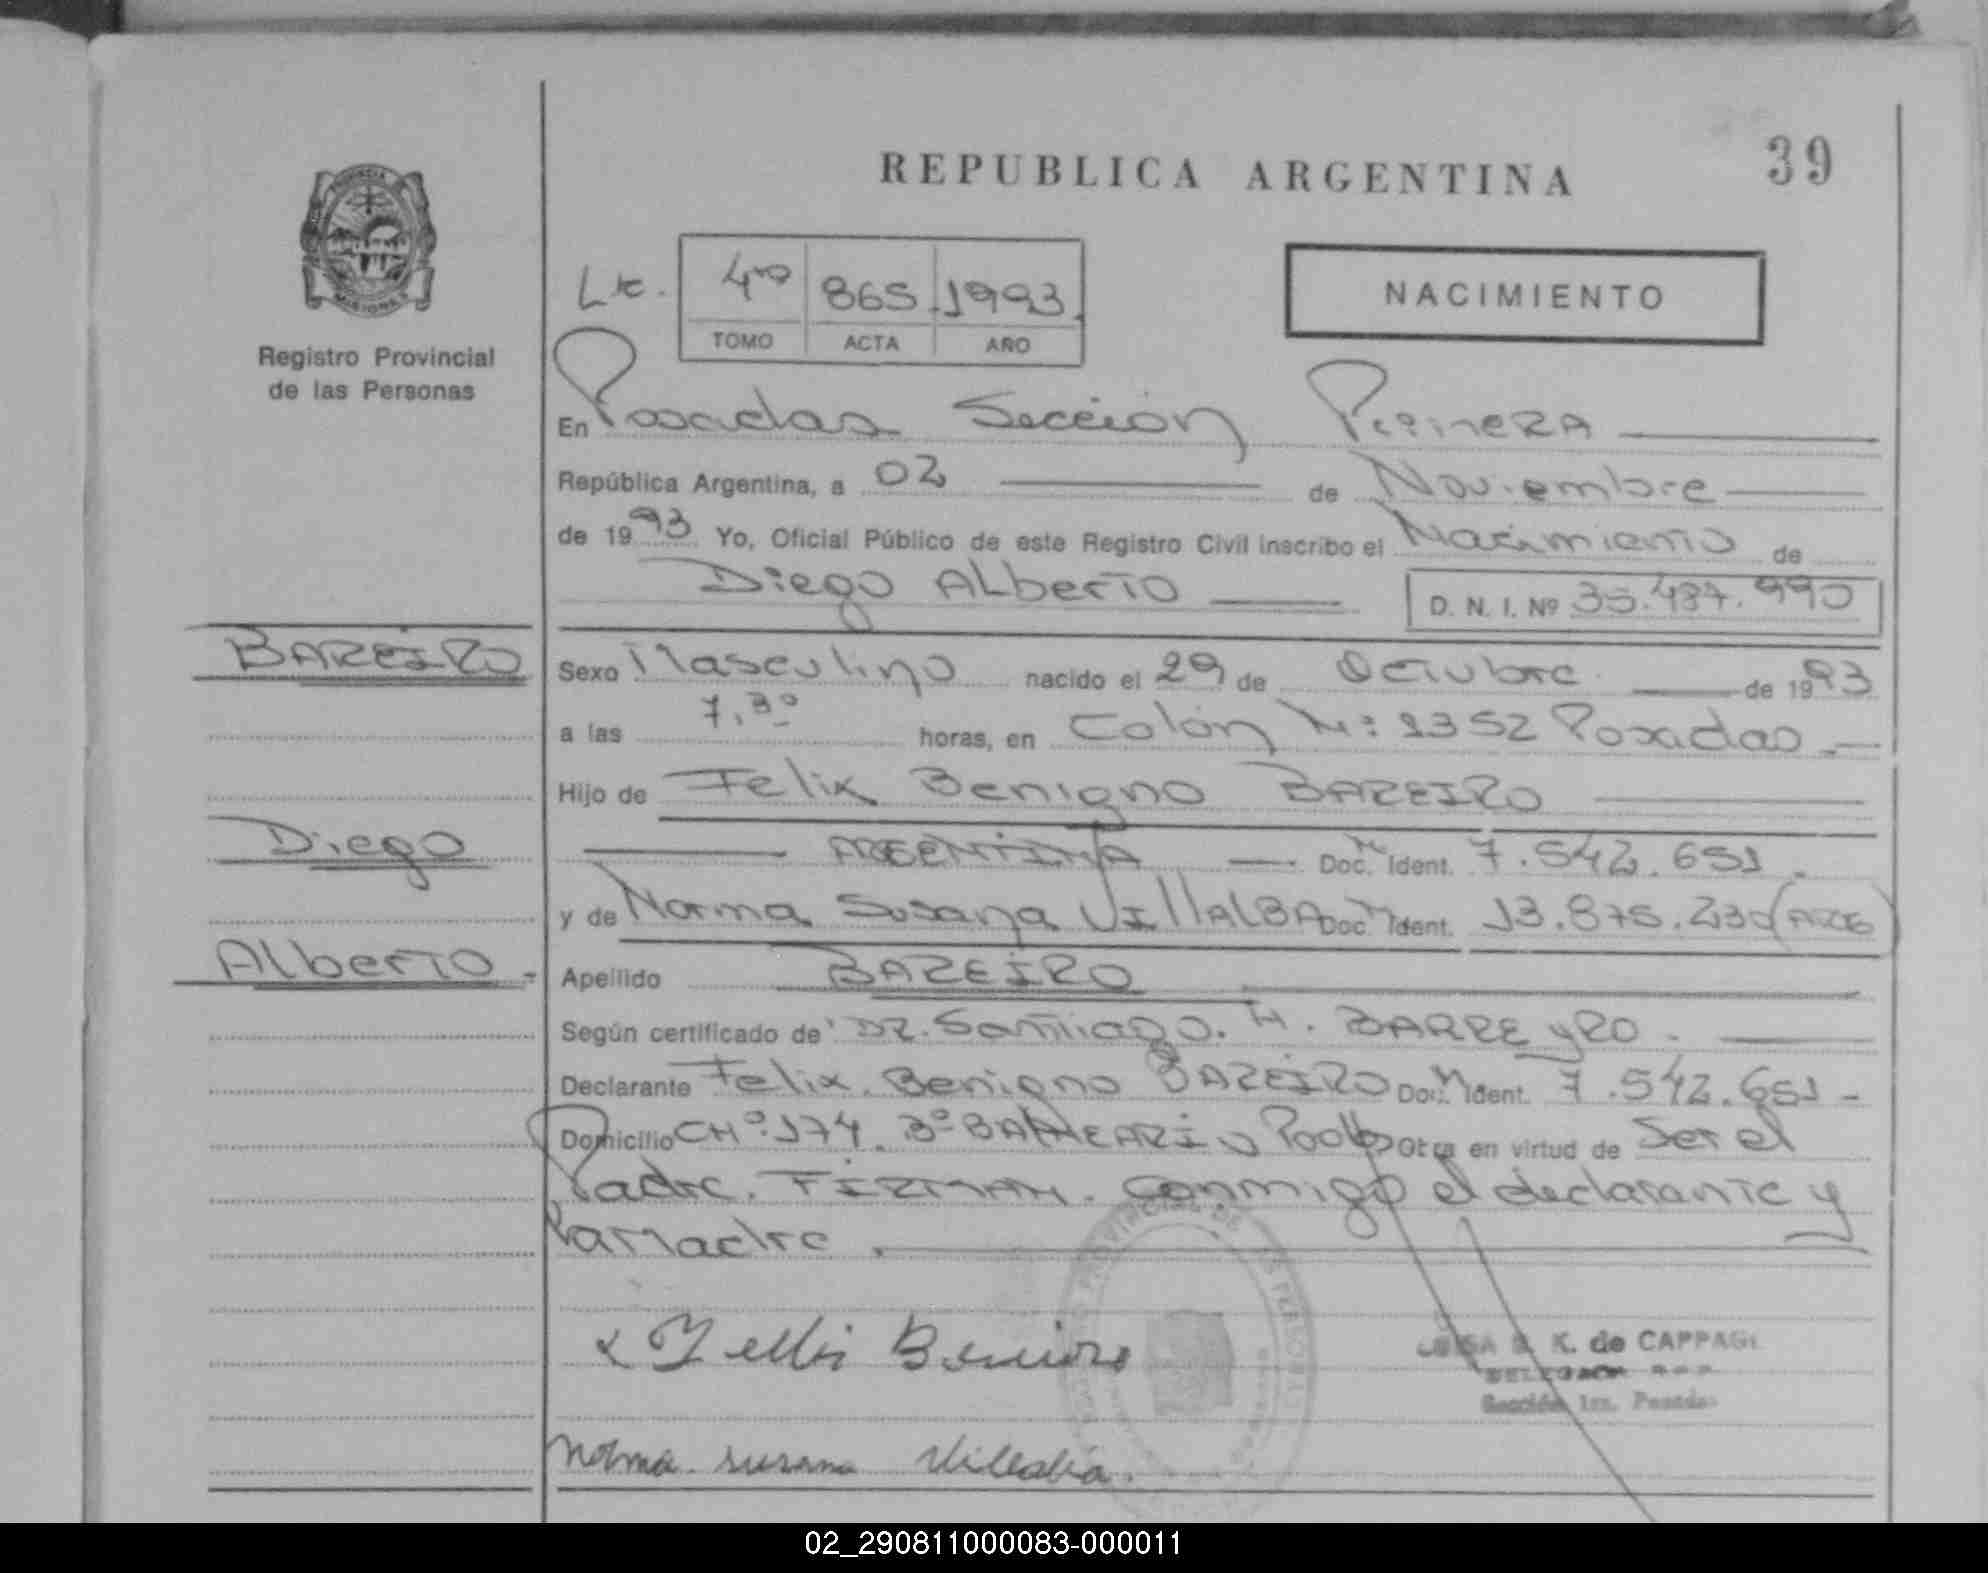 REPUBLICA ARGENTINA
39
PROVINCIA
MISIONES
Registro Provincial
de las Personas
4to 865 1993
TOMO ACTA AÑO
NACIMIENTO
En Posadas Sección Primera
República Argentina, a 02 de Noviembre
de 1993 Yo, Oficial Público de este Registro Civil inscribo el Nacimiento de
Diego Alberto D. N. I. Nº 35.487.990
BAREIRO
Sexo Masculino nacido el 29 de Octubre de 1993
a las 7,30 horas, en Colón Nº 1352 Posadas
Hijo de Felix Benigno BAREIRO
Diego
ARGENTINA Doc. Ident. 7.542.651
y de Norma Susana VillALBA Doc. Ident. 13.875.230 (ARG)
Alberto
Apellido BAREIRO
Según certificado de DR. Santiago. H. BARREyRO
Declarante Felix Benigno BAREIRO Doc. Ident. 7.542.651
Domicilio CHº 174 Bº en virtud de Ser el
Padre. FIRMAN. Conmigo el declarante y
la Madre.
Felix Bareiro
LUISA S. K. de CAPPAGLI
Sección 1ra. Posadas
Norma susana Villalba.
02_290811000083-000011